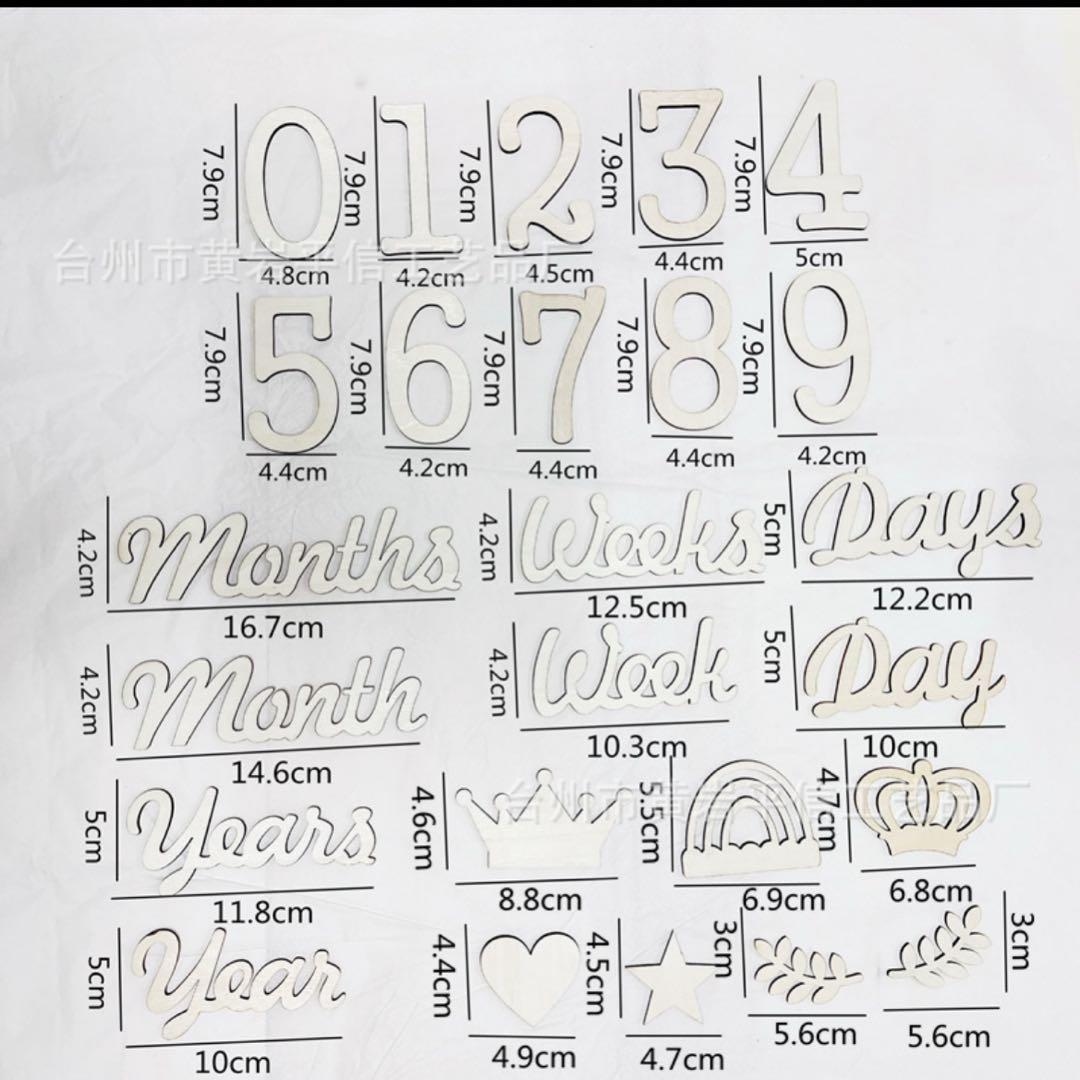 0 1 2 3 4
7.9cm 7.9cm 7.9cm 7.9cm 7.9cm
台州市黄岩平信工艺品厂
4.8cm 4.2cm 4.5cm 4.4cm 5cm
5 6 7 8 9
7.9cm 7.9cm 7.9cm 7.9cm 7.9cm
4.4cm 4.2cm 4.4cm 4.4cm 4.2cm
4.2cm Months 4.2cm Weeks 5cm Days
16.7cm 12.5cm 12.2cm
4.2cm Month 4.2cm Week 5cm Day
14.6cm 10.3cm 10cm
台州市黄岩平信工艺品厂
5cm Years 4.6cm 5.5cm 4.7cm
11.8cm 8.8cm 6.9cm 6.8cm
5cm Year 4.4cm 4.5cm 3cm 3cm
10cm 4.9cm 4.7cm 5.6cm 5.6cm